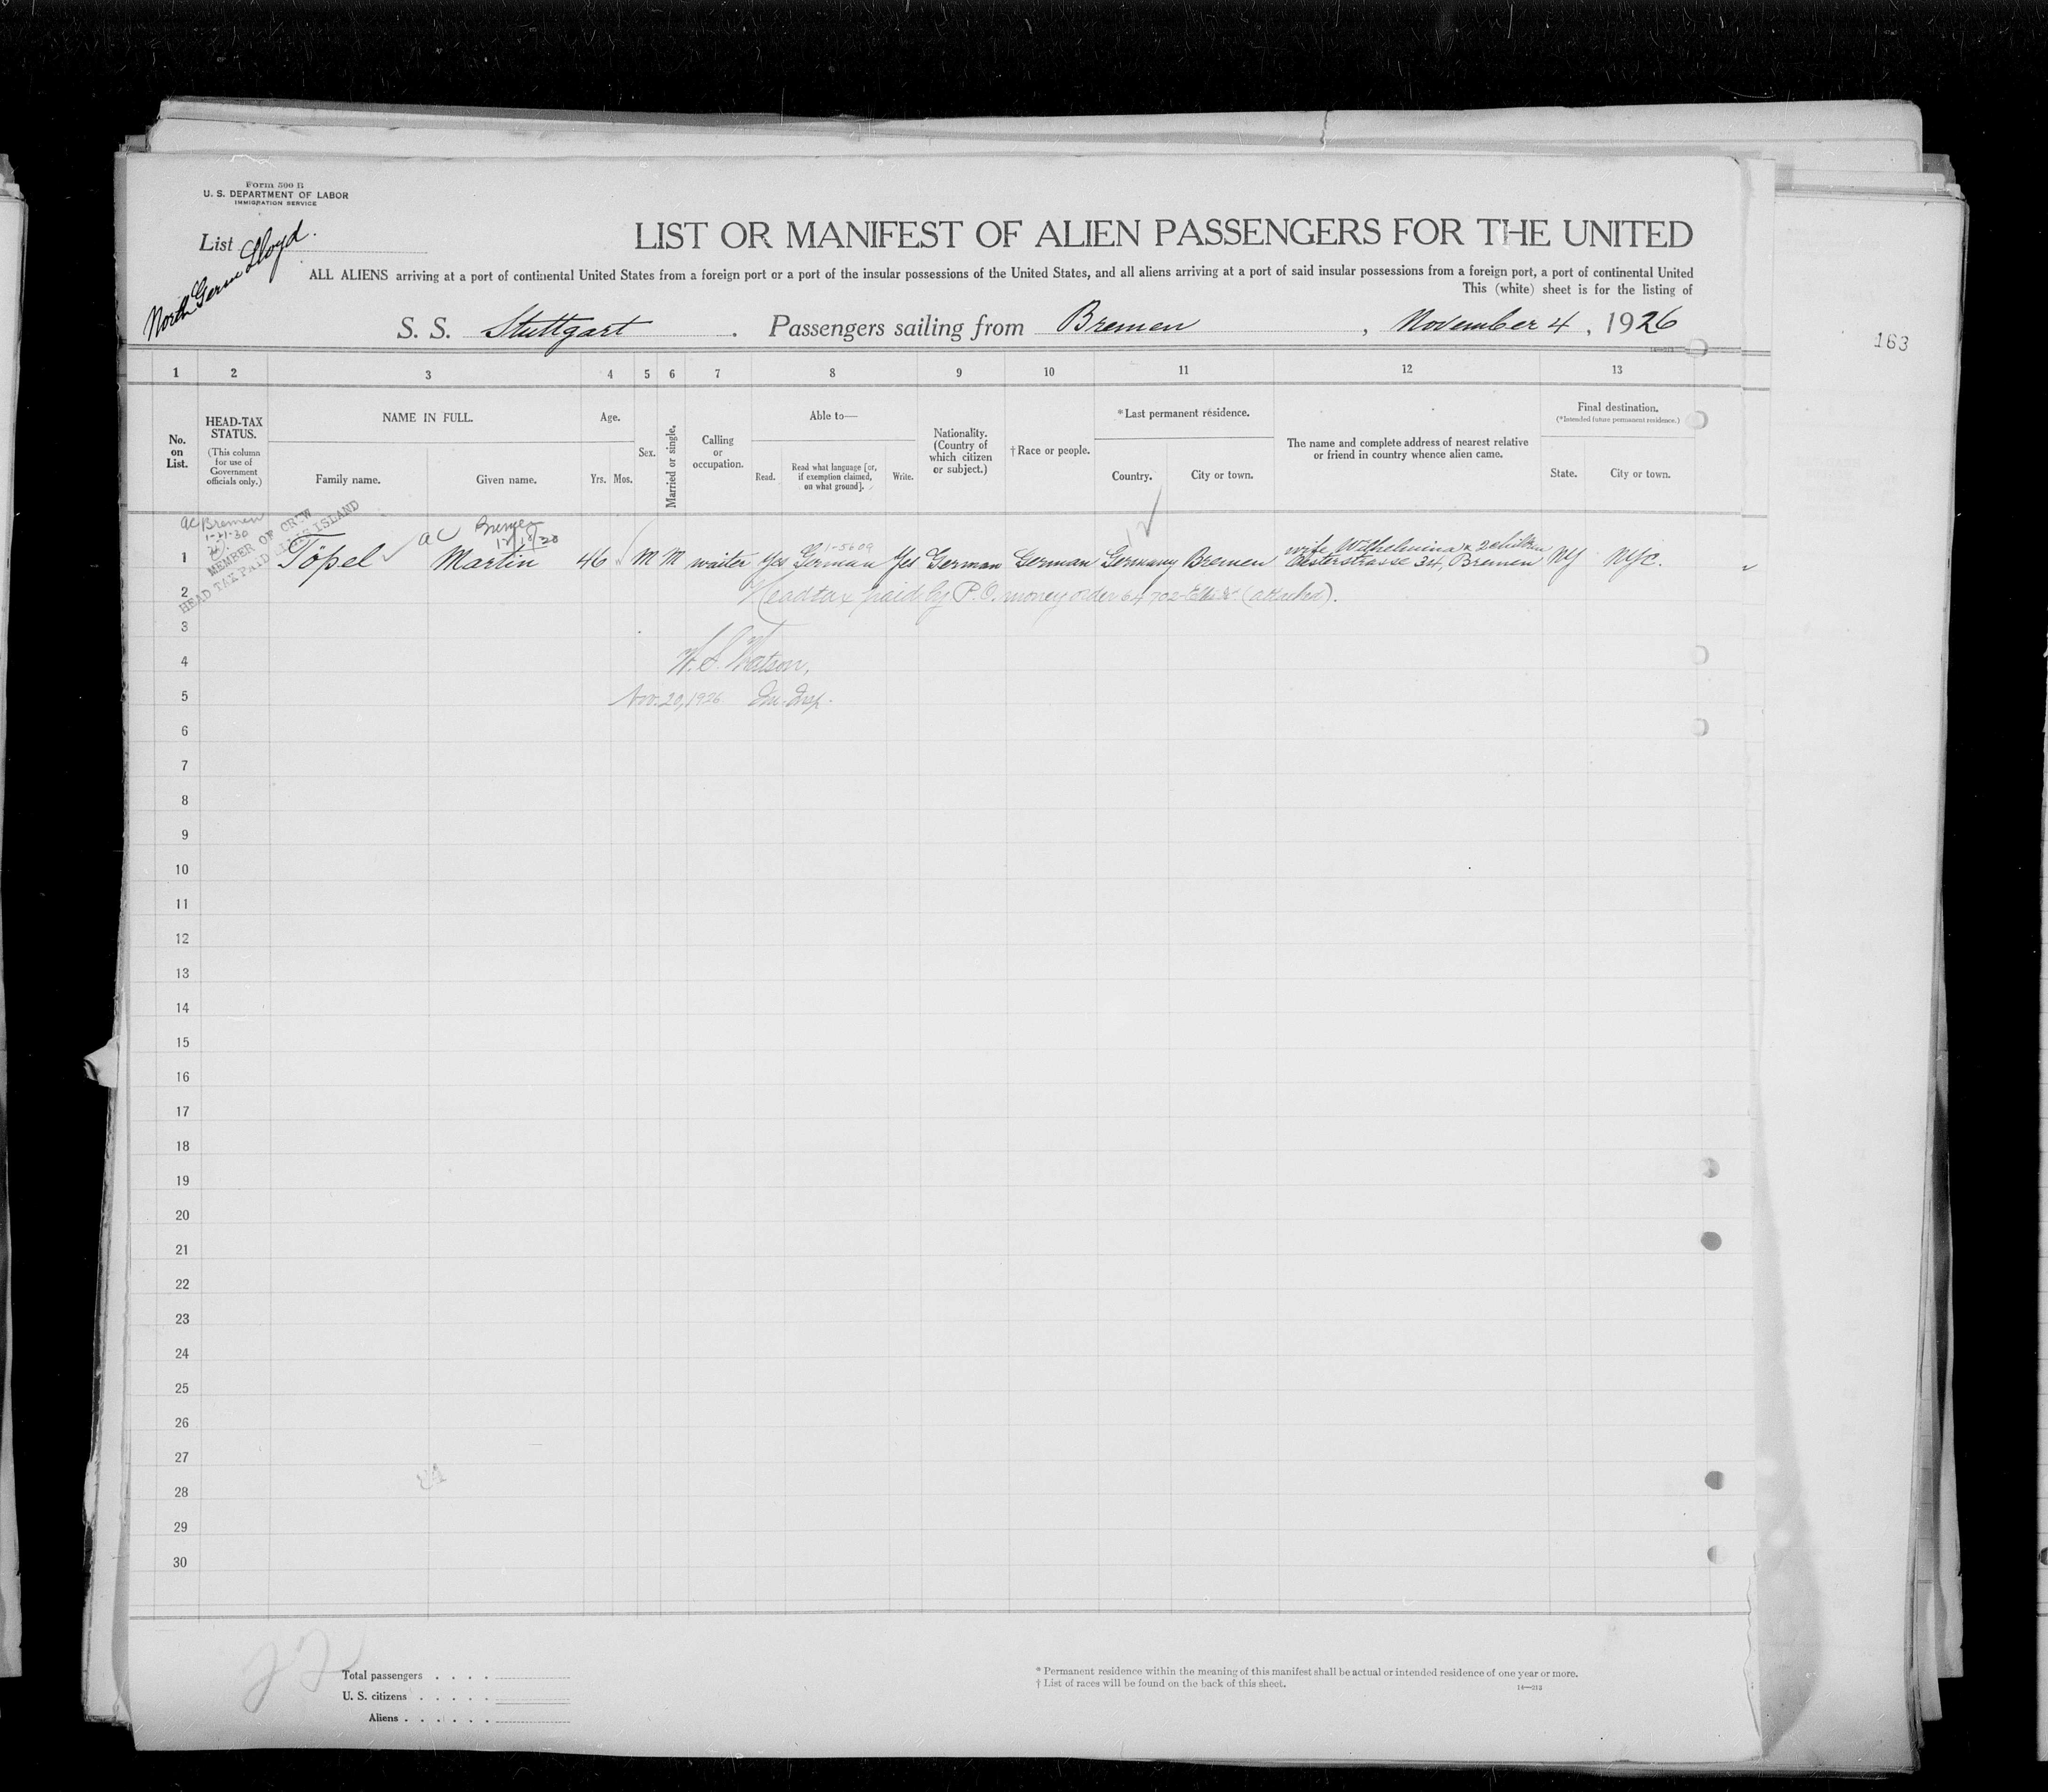 Form 500 B
U. S. DEPARTMENT OF LABOR
IMMIGRATION SERVICE
List
North Germ Lloyd.
LIST OR MANIFEST OF ALIEN PASSENGERS FOR THE UNITED
ALL ALIENS arriving at a port of continental United States from a foreign port or a port of the insular possessions of the United States, and all aliens arriving at a port of said insular possessions from a foreign port, a port of continental United
This (white) sheet is for the listing of
S. S. Stuttgart . Passengers sailing from Bremen , November 4 , 1926
163
1 2 3 4 5 6 7 8 9 10 11 12 13
No. on List.
HEAD-TAX STATUS.
(This column for use of Government officials only.)
NAME IN FULL.
Family name. Given name.
Age.
Yrs. Mos.
Sex.
Married or single.
Calling or occupation.
Able to—
Read. Read what language [or, if exemption claimed, on what ground]. Write.
Nationality. (Country of which citizen or subject.)
†Race or people.
*Last permanent residence.
Country. City or town.
The name and complete address of nearest relative or friend in country whence alien came.
Final destination.
(*Intended future permanent residence.)
State. City or town.
ac Bremen
1-21-30
MEMBER OF CREW
HEAD TAX PAID ELLIS ISLAND
ac Bremen
12/18/28
12
1-5609
wife Wilhelmina & 2 children
1 Töpel Martin 46 M M waiter Yes German Yes German German Germany Bremen Oesterstrasse 34, Bremen NY NYC.
2 Headtax paid by P.O. money order 64702 (attached).
3
4 W. S. Watson,
5 Nov. 20, 1926 Im. Insp.
6
7
8
9
10
11
12
13
14
15
16
17
18
19
20
21
22
23
24
25
26
27
28
29
30
22
Total passengers . . . .
U. S. citizens . . . . .
Aliens . . . . . .
* Permanent residence within the meaning of this manifest shall be actual or intended residence of one year or more.
† List of races will be found on the back of this sheet.
14—213